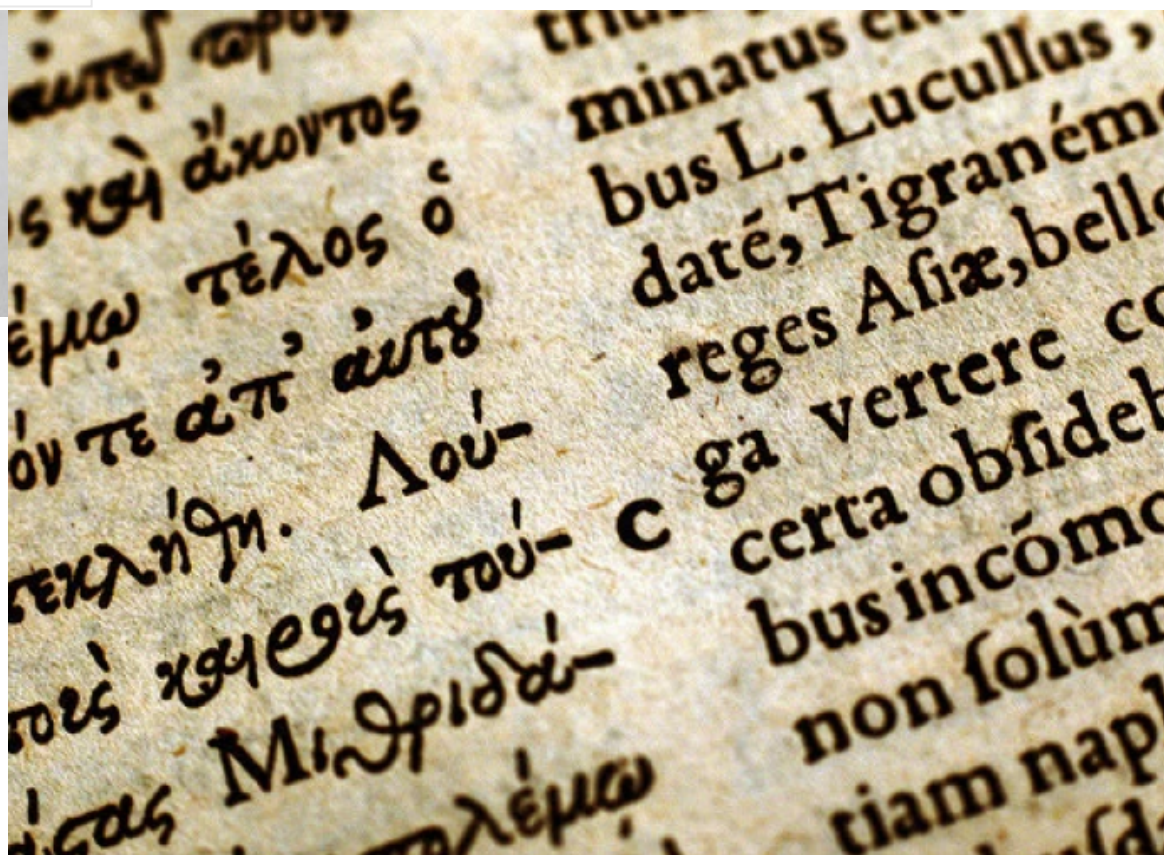 πρὸς
ς καὶ ἄκοντος
έμῳ τέλος ὁ
όν τε ἀπ' αὐτοῦ
τεκλήθη. Λού-
τοὺς καιροὺς τού-
Μιθριδά-
πολέμῳ
C
minatus
bus L. Lucullus,
daté, Tigraném
reges Aſiæ, bell
ga vertere co
certa obſideb
bus incõmo
non ſolùm
tiam nap